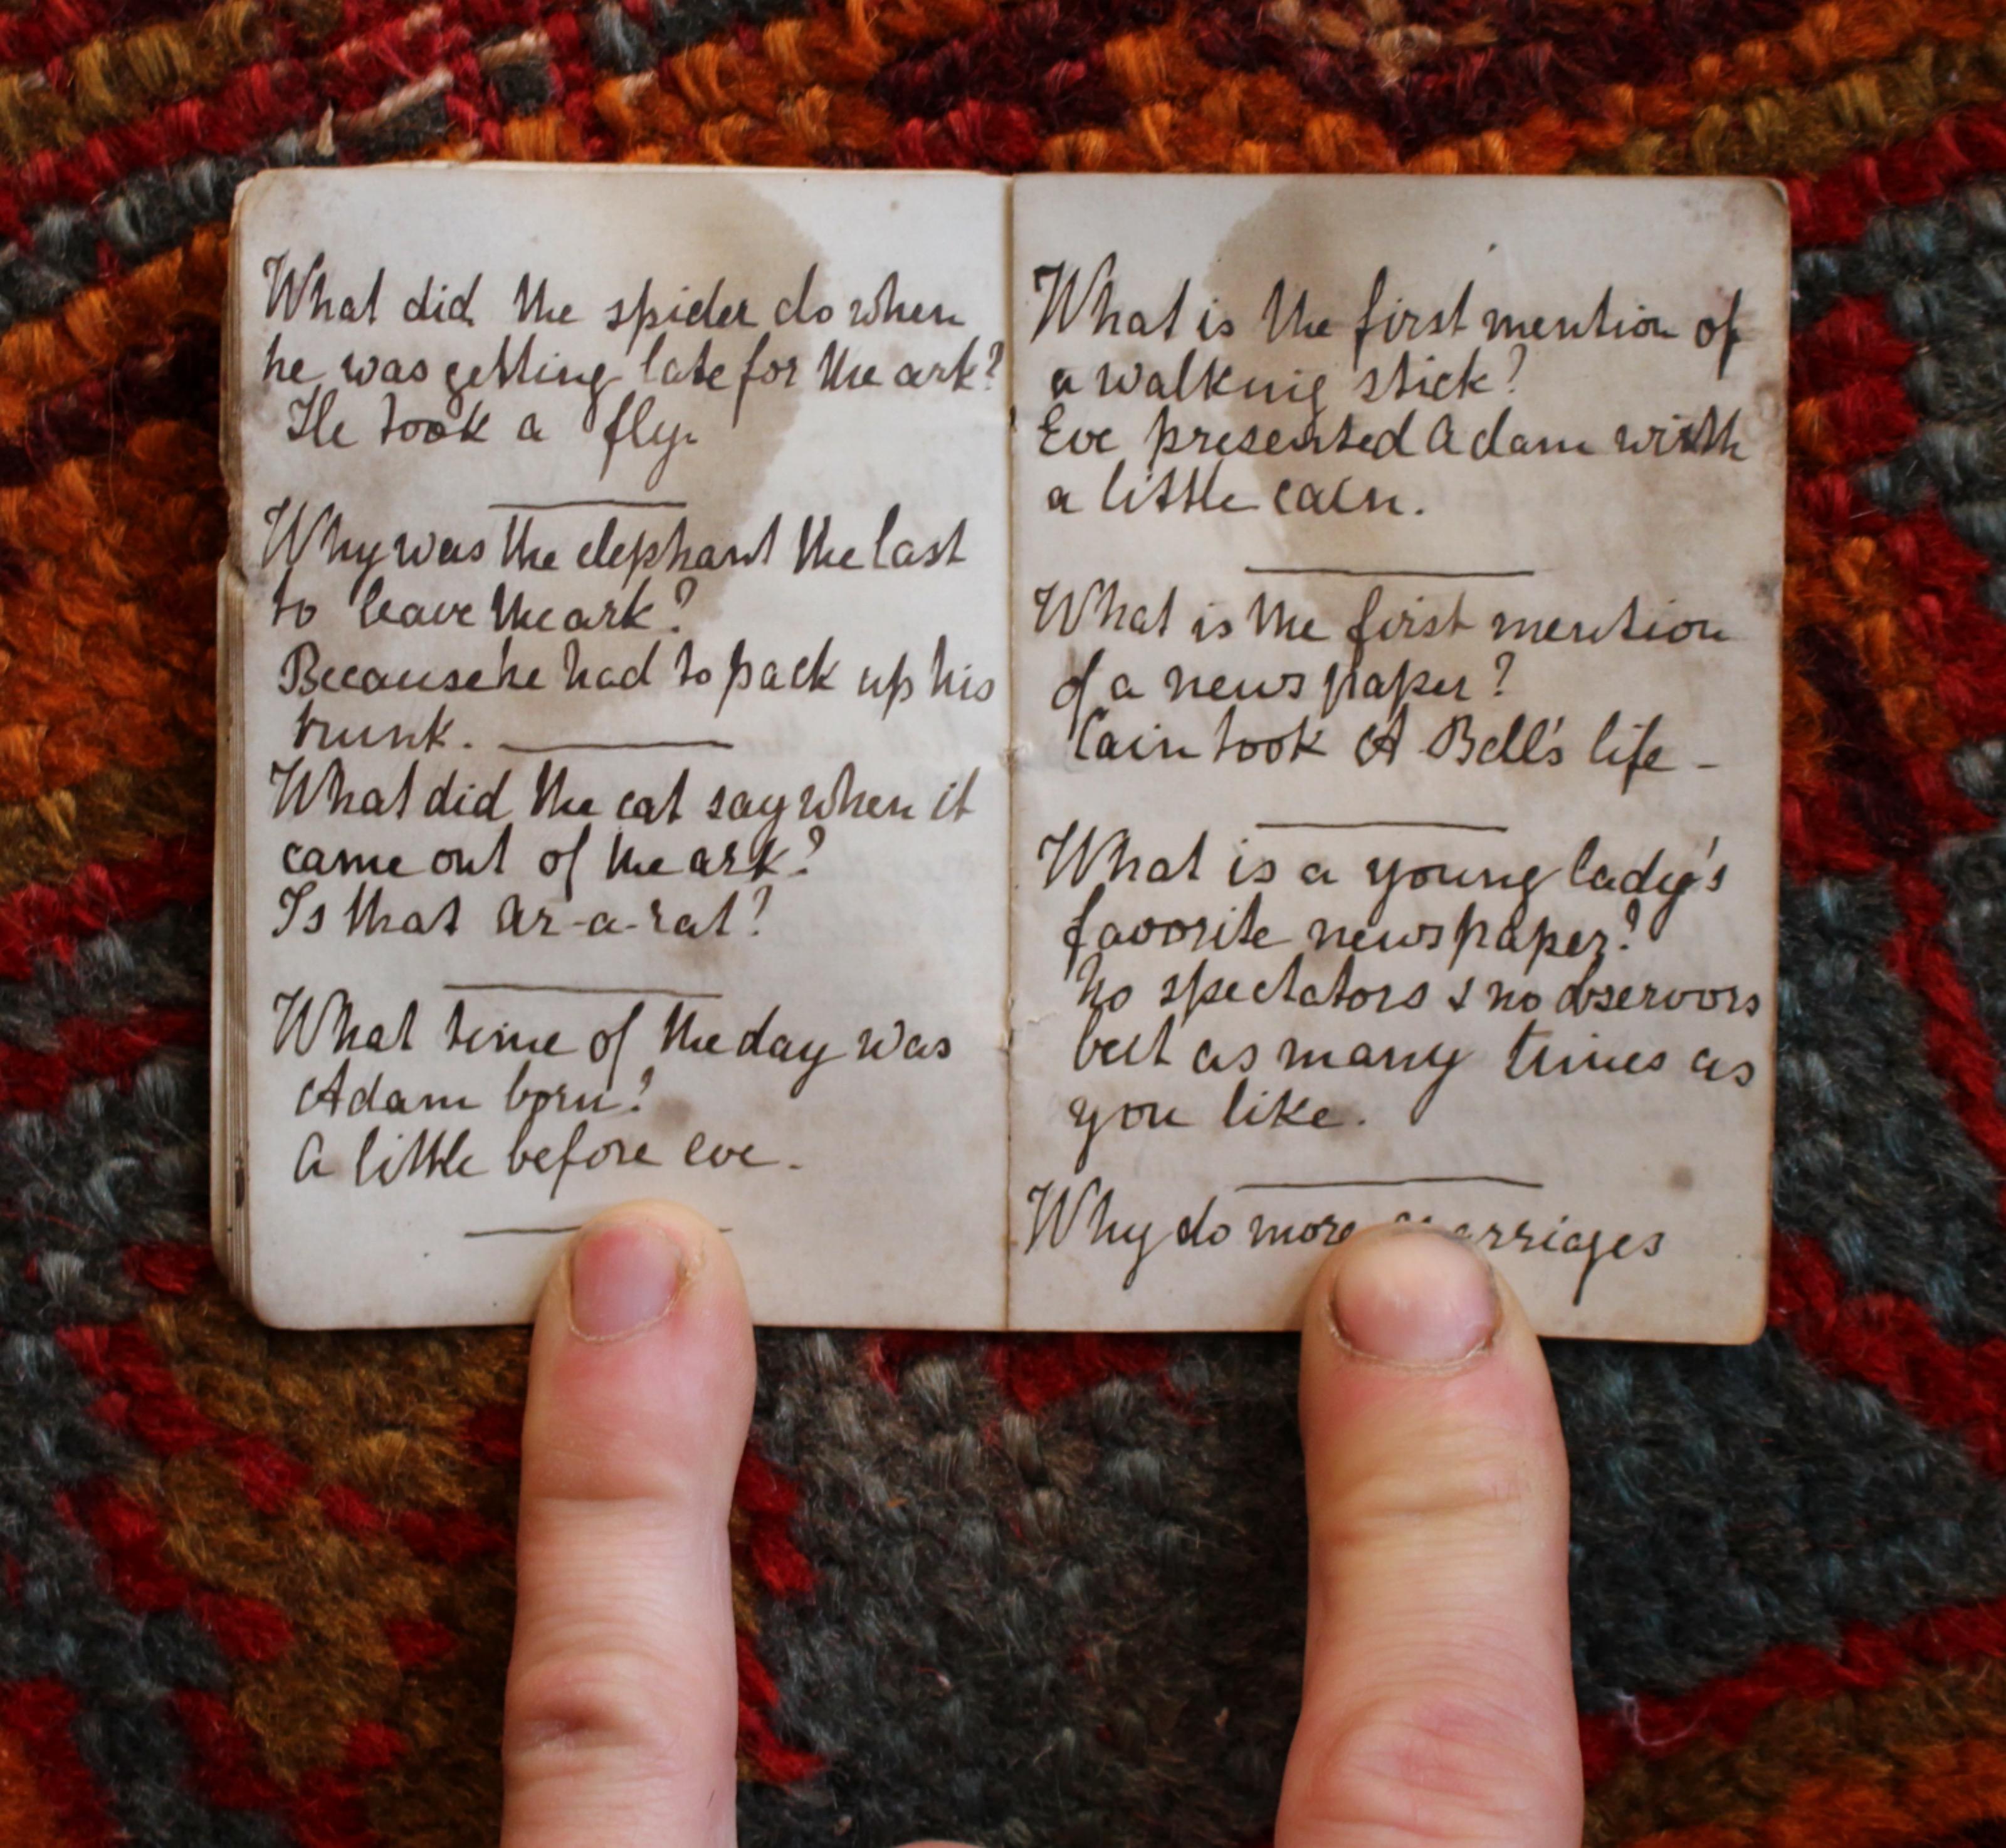 What did the spider do when
he was getting late for the ark?
He took a fly.
Why was the elephant the last
to leave the ark?
Because he had to pack up his
trunk.
What did the cat say when it
came out of the ark?
Is that Ar-a-rat?
What time of the day was
Adam born?
A little before eve.
What is the first mention of
a walking stick?
Eve presented Adam with
a little cain.
What is the first mention
of a newspaper?
Cain took A Bell's life -
What is a young lady's
favorite newspaper?
No spectators & no observors
but as many times as
you like.
Why do more marriages